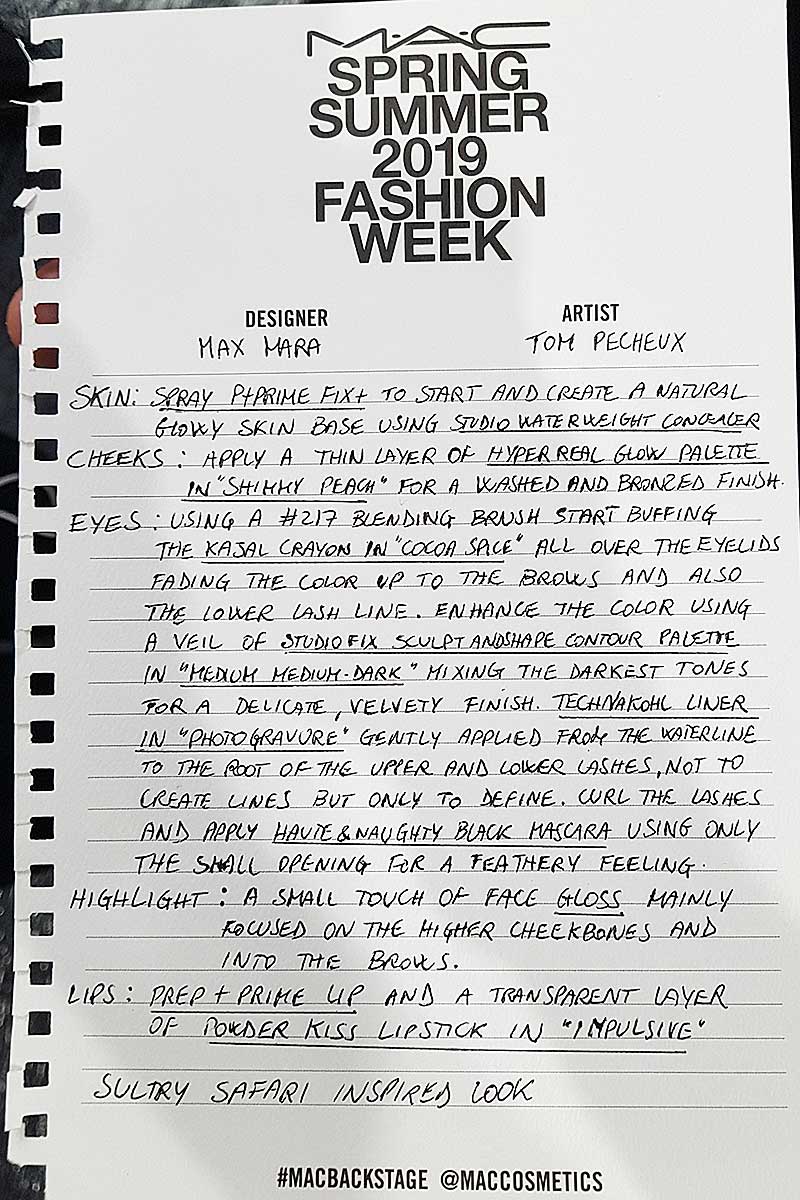 M·A·C
SPRING
SUMMER
2019
FASHION
WEEK
DESIGNER ARTIST
MAX MARA TOM PECHEUX
SKIN: SPRAY P+PRIME FIX+ TO START AND CREATE A NATURAL
GLOWY SKIN BASE USING STUDIO WATERWEIGHT CONCEALER
CHEEKS: APPLY A THIN LAYER OF HYPER REAL GLOW PALETTE
IN "SHIMMY PEACH" FOR A WASHED AND BRONZED FINISH.
EYES: USING A #217 BLENDING BRUSH START BUFFING
THE KAJAL CRAYON IN "COCOA SPICE" ALL OVER THE EYELIDS
FADING THE COLOR UP TO THE BROWS AND ALSO
THE LOWER LASH LINE. ENHANCE THE COLOR USING
A VEIL OF STUDIO FIX SCULPT AND SHAPE CONTOUR PALETTE
IN "MEDIUM MEDIUM-DARK" MIXING THE DARKEST TONES
FOR A DELICATE, VELVETY FINISH. TECHNAKOHL LINER
IN "PHOTOGRAVURE" GENTLY APPLIED FROM THE WATERLINE
TO THE ROOT OF THE UPPER AND LOWER LASHES, NOT TO
CREATE LINES BUT ONLY TO DEFINE. CURL THE LASHES
AND APPLY HAUTE & NAUGHTY BLACK MASCARA USING ONLY
THE SMALL OPENING FOR A FEATHERY FEELING.
HIGHLIGHT: A SMALL TOUCH OF FACE GLOSS MAINLY
FOCUSED ON THE HIGHER CHEEKBONES AND
INTO THE BROWS.
LIPS: PREP + PRIME LIP AND A TRANSPARENT LAYER
OF POWDER KISS LIPSTICK IN "IMPULSIVE"
SULTRY SAFARI INSPIRED LOOK
#MACBACKSTAGE @MACCOSMETICS